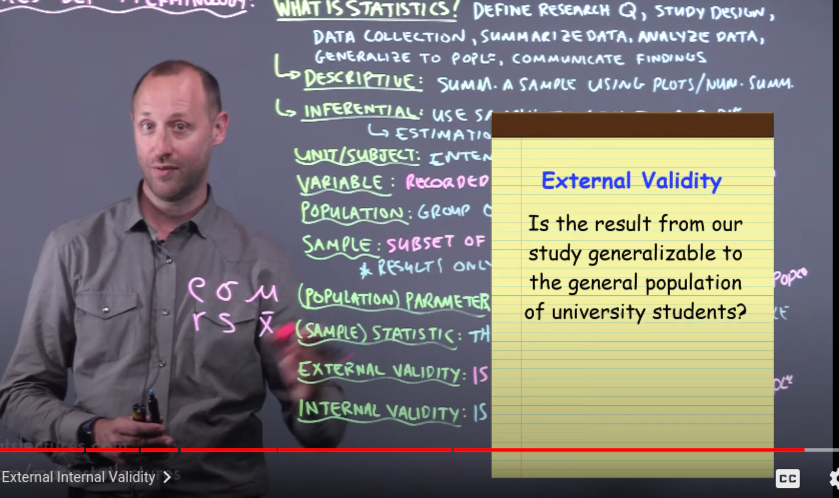 WHAT IS STATISTICS? DEFINE RESEARCH Q, STUDY DESIGN,
DATA COLLECTION, SUMMARIZE DATA, ANALYZE DATA,
GENERALIZE TO POPLE, COMMUNICATE FINDINGS
DESCRIPTIVE: SUMM. A SAMPLE USING PLOTS/NUM. SUMM.
INFERENTIAL: USE
ESTIMATIO
UNIT/SUBJECT: INTEN
VARIABLE: RECORDED
POPULATION: GROUP
SAMPLE: SUBSET OF
* RESULTS ONLY
(POPULATION) PARAMETER
(SAMPLE) STATISTIC: TH
EXTERNAL VALIDITY: IS
INTERNAL VALIDITY: IS
ρ σ μ
r s x̄
External Validity
Is the result from our
study generalizable to
the general population
of university students?
External Internal Validity
CC